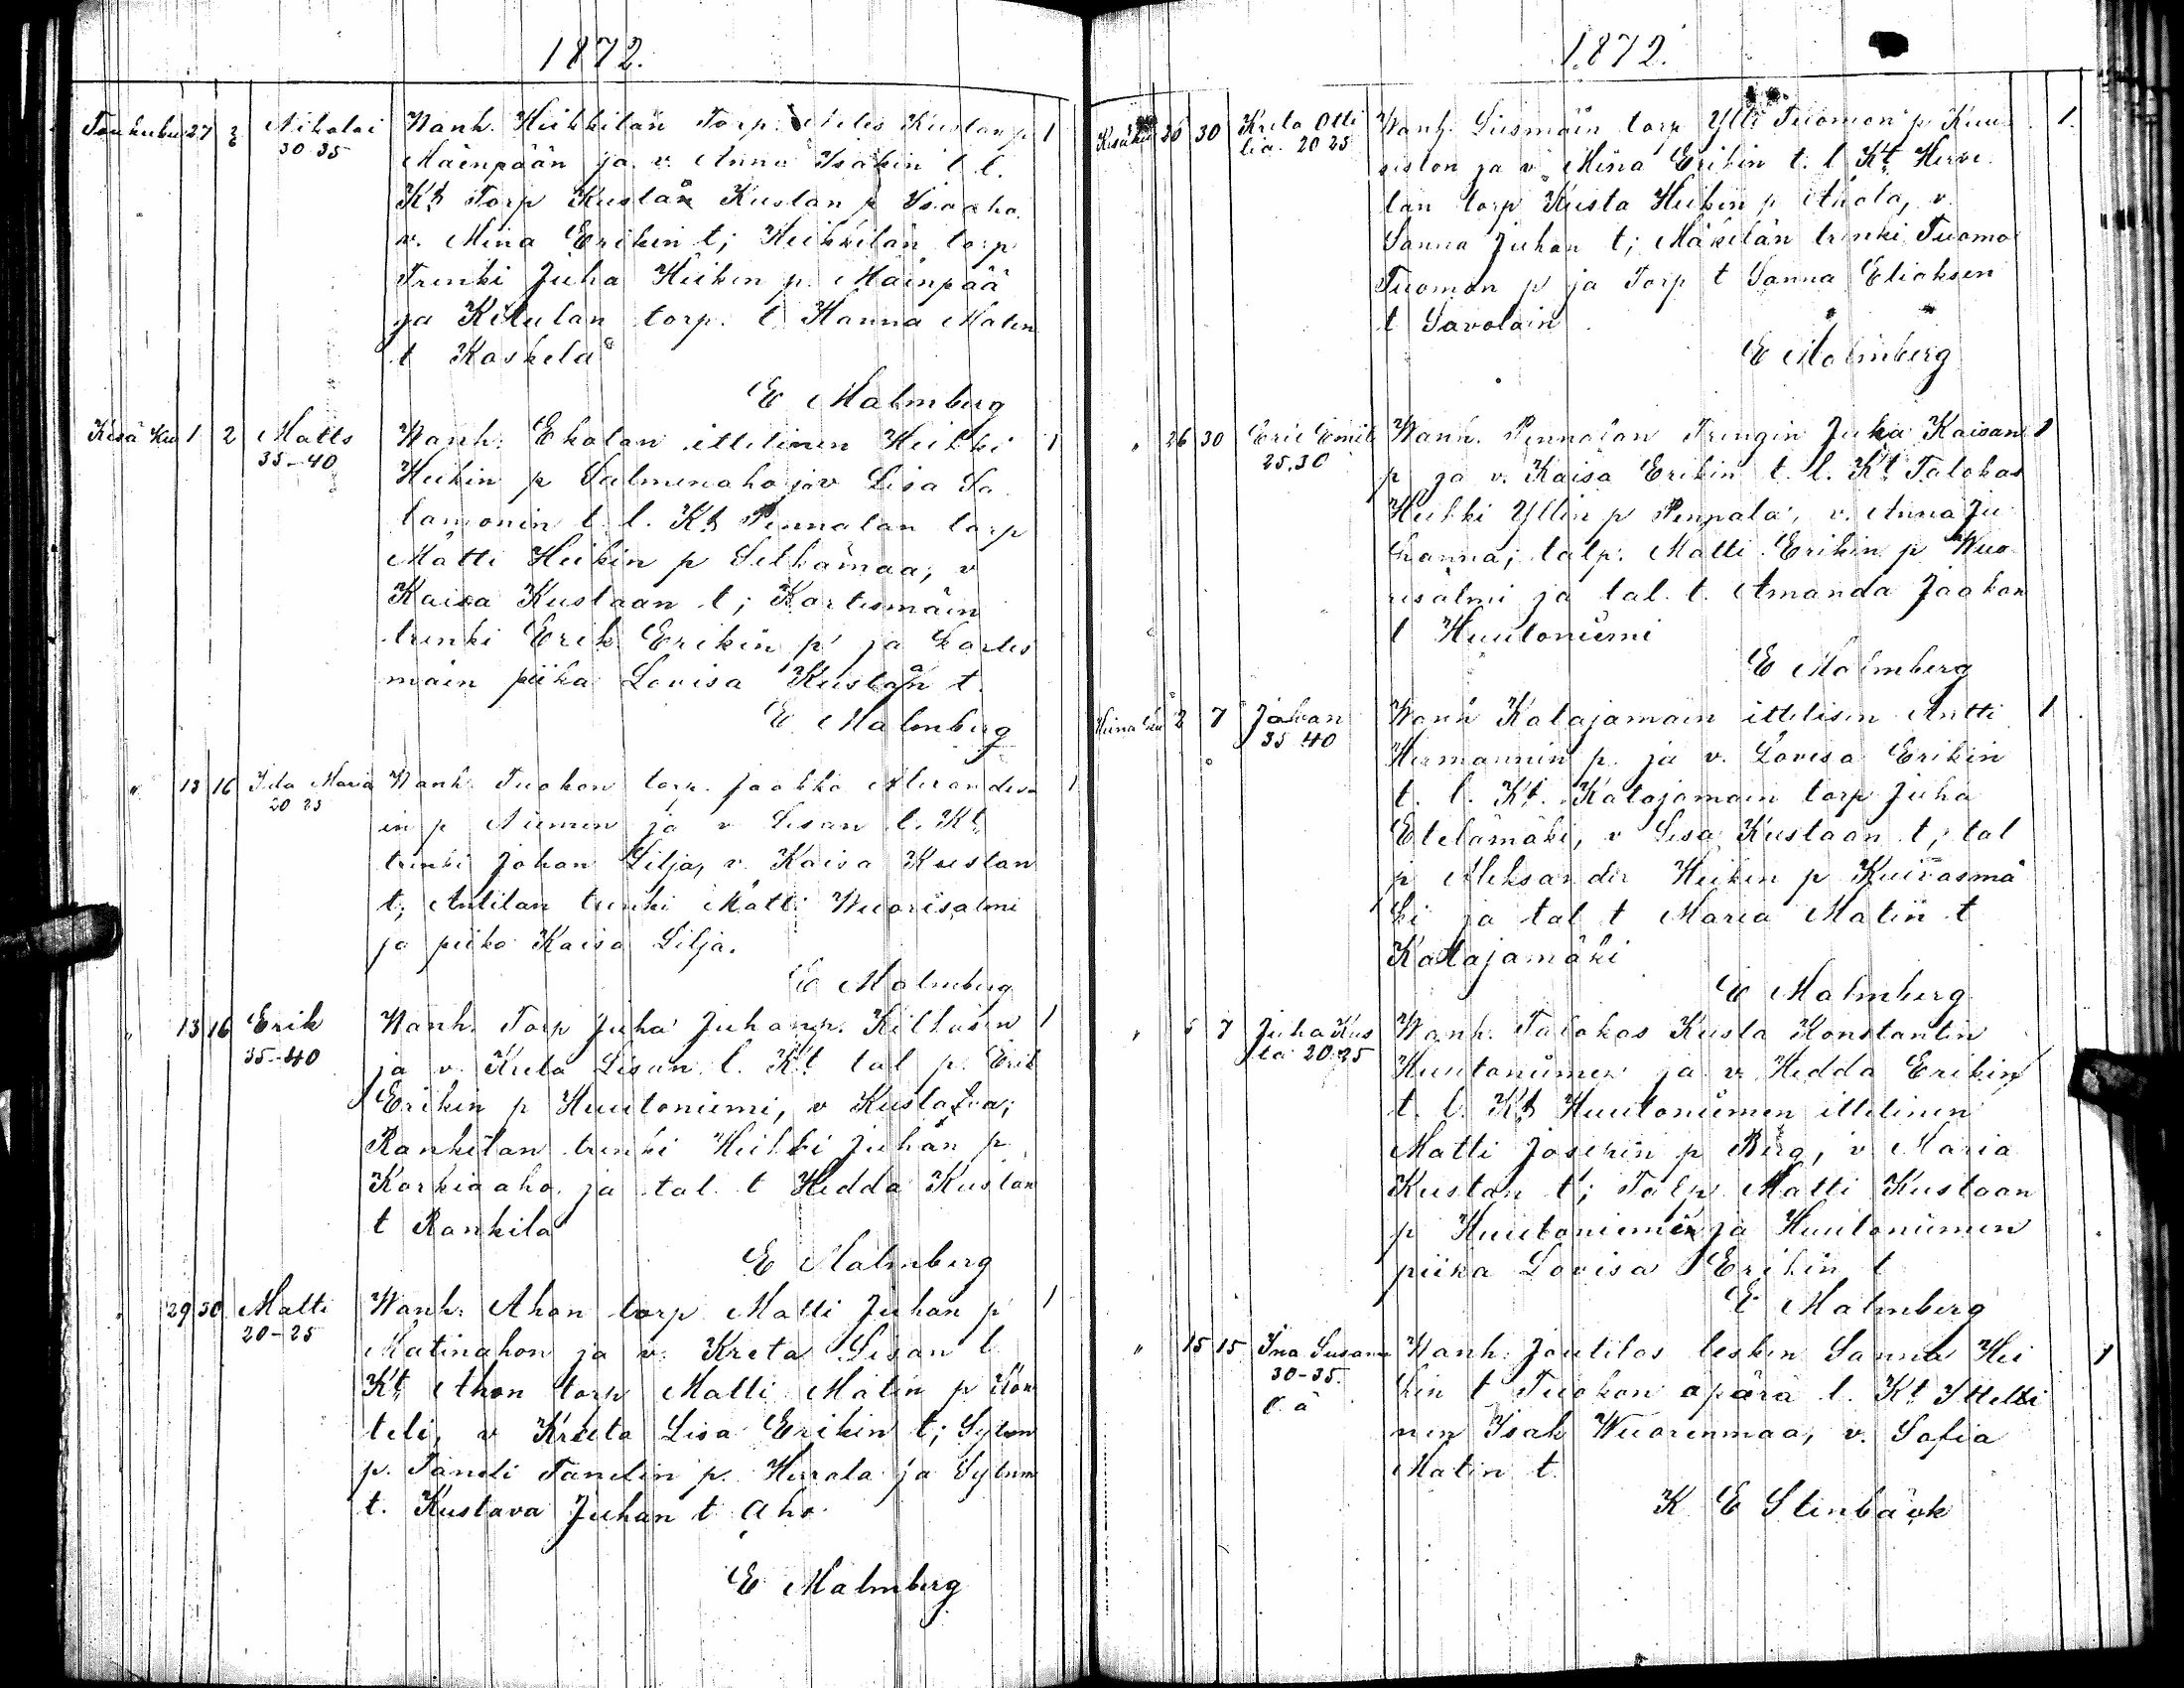 1872.
Toukokuu 27 2/6 Nikolai Wanh. Heikkilän Torp. Niles Kustan p 1
30 35 Mäenpään ja v. Anna Isakin t l.
Kt Torp Kustan Kustan p Isoaho
v. Mina Erikin t; Heikkilän torp
Trenki Juha Heikin p. Mäinpää
ja Kitulan torp. t Hanna Matin
t Koskela
E Malmberg
Kesä Kuu 1 2 Matts Wanh. Ekolan ittelinen Heikki 1
35-40 Heikin p Salmenaho ja v Lisa Sa
lamonin t. l. Kt Pennalan torp
Matti Heikin p Selkämaa, v
Kaisa Kustaan t; Kortesmäin
trenki Erik Erikin p ja Kortes
mäin piika Lovisa Kustan t.
E Malmberg
" 13 16 Ida Maria Wanh. Tuokon torp. Jaakko Alexanderi 1
20 25 in p Niemen ja v Lisan l. Kt
trenki Johan Lilja, v. Kaisa Kustan
t; Antilan trenki Matti Wuorisalmi
ja piika Kaisa Lilja.
E Malmberg
" 13 16 Erik Wanh. Torp Juha Juhan p. Kilkosen 1
35-40 ja v. Kreta Lisan l. Kt tal p. Erik
Erikin p Huutoniemi, v Kustava;
Rankilan trenki Heikki Juhan p
Korkiaaho ja tal. t Hedda Kustan
t Rankila
E Malmberg
" 29 30 Matti Wanh. Ahon torp Matti Juhan p 1
20-25 Matinahon ja v. Kreta Lisan l
Kt Ahon torp Matti Matin p Kon
teli, v Kreeta Lisa Erikin t; Sytem
p. Taneli Tanelin p. Herrala ja Sytem
t. Kustava Juhan t Aho
E Malmberg
1872.
Kesäkuu 26 30 Kreta Otti Wanh. Liismäin torp Ylli Tuomon p Kuu 1.
lia. 20 25 siston ja v Mina Erikin t. l Kt Hervi
lan torp Kusta Heikin p Anola, v.
Sanna Juhan t; Mäkelän trenki Tuomo
Tuomon p ja Torp t Sanna Eliaksen
t Savolain
E Malmberg
" 26 30 Eric Emil Wanh. Pennalan Trengin Juha Kaisan 1
25.30 p ja v. Kaisa Erikin t. l. Kt Talokas
Heikki Yllin p Pennala, v. Anna Ju
hanna; talp. Matti Erikin p Wuo
risalmi ja tal. t. Amanda Jaakon
t Huutoniemi
E Malmberg
Heinä kuu 2 7 Johan Wanh Katajamäin ittelisen Antti 1
35 40 Hermannin p. ja v. Lovisa Erikin
t. l. Kt. Katajamäin torp Juha
Etelämäki, v Lisa Kustaan t; tal
p Aleksander Heikin p Kuivasmä
ki ja tal t Maria Matin t
Katajamäki
E Malmberg
" 5 7 Juha Kus Wanh. Talokas Kusta Konstantin 1
ta 20-25 Huutoniemen ja v. Hedda Erikin
t. l. Kt Huutoniemen ittelinen
Matti Josepin p Berg, v Maria
Kustan t; Talp. Matti Kustaan
p Huutoniemen ja Huutoniemen
piika Lovisa Erikin t
E Malmberg
" 15 15 Ina Susana Wanh. Joutilas lesken Sanna Hei 1
30-35. kin t Tuokon äpärä l. Kt Ittelli
o. ä nen Isak Wuorenmaa, v. Sofia
Matin t.
K E Stenbäck